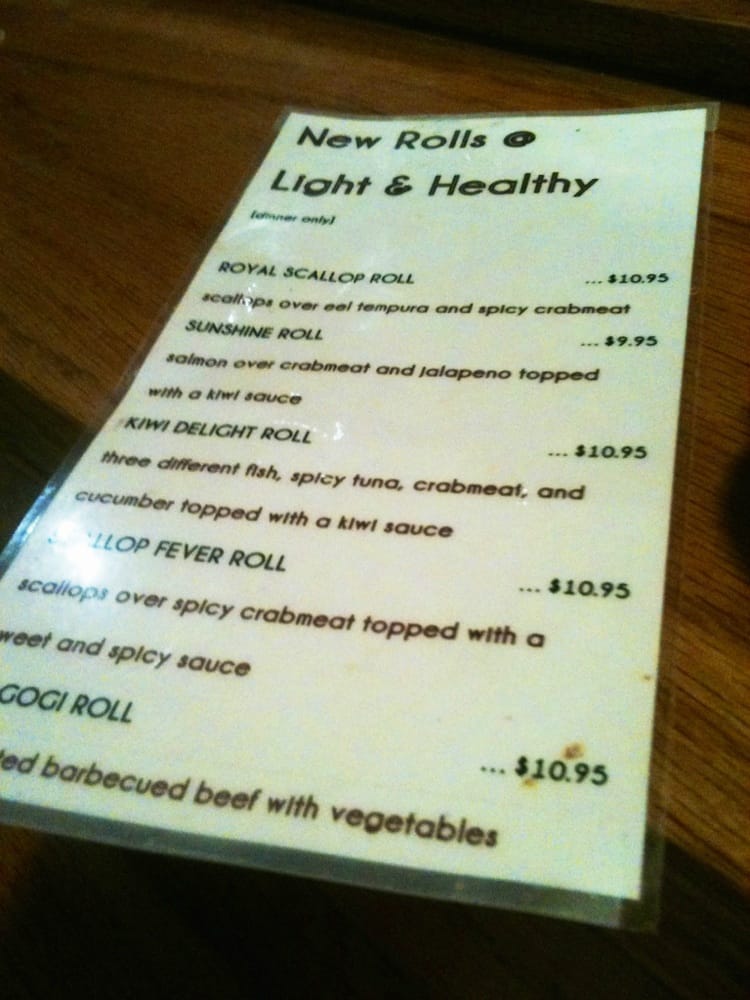 New Rolls @
Light & Healthy
[dinner only]
ROYAL SCALLOP ROLL ... $10.95
scallops over eel tempura and spicy crabmeat
SUNSHINE ROLL ... $9.95
salmon over crabmeat and jalapeno topped
with a kiwi sauce
KIWI DELIGHT ROLL ... $10.95
three different fish, spicy tuna, crabmeat, and
cucumber topped with a kiwi sauce
SCALLOP FEVER ROLL ... $10.95
scallops over spicy crabmeat topped with a
weet and spicy sauce
GOGI ROLL ... $10.95
ted barbecued beef with vegetables